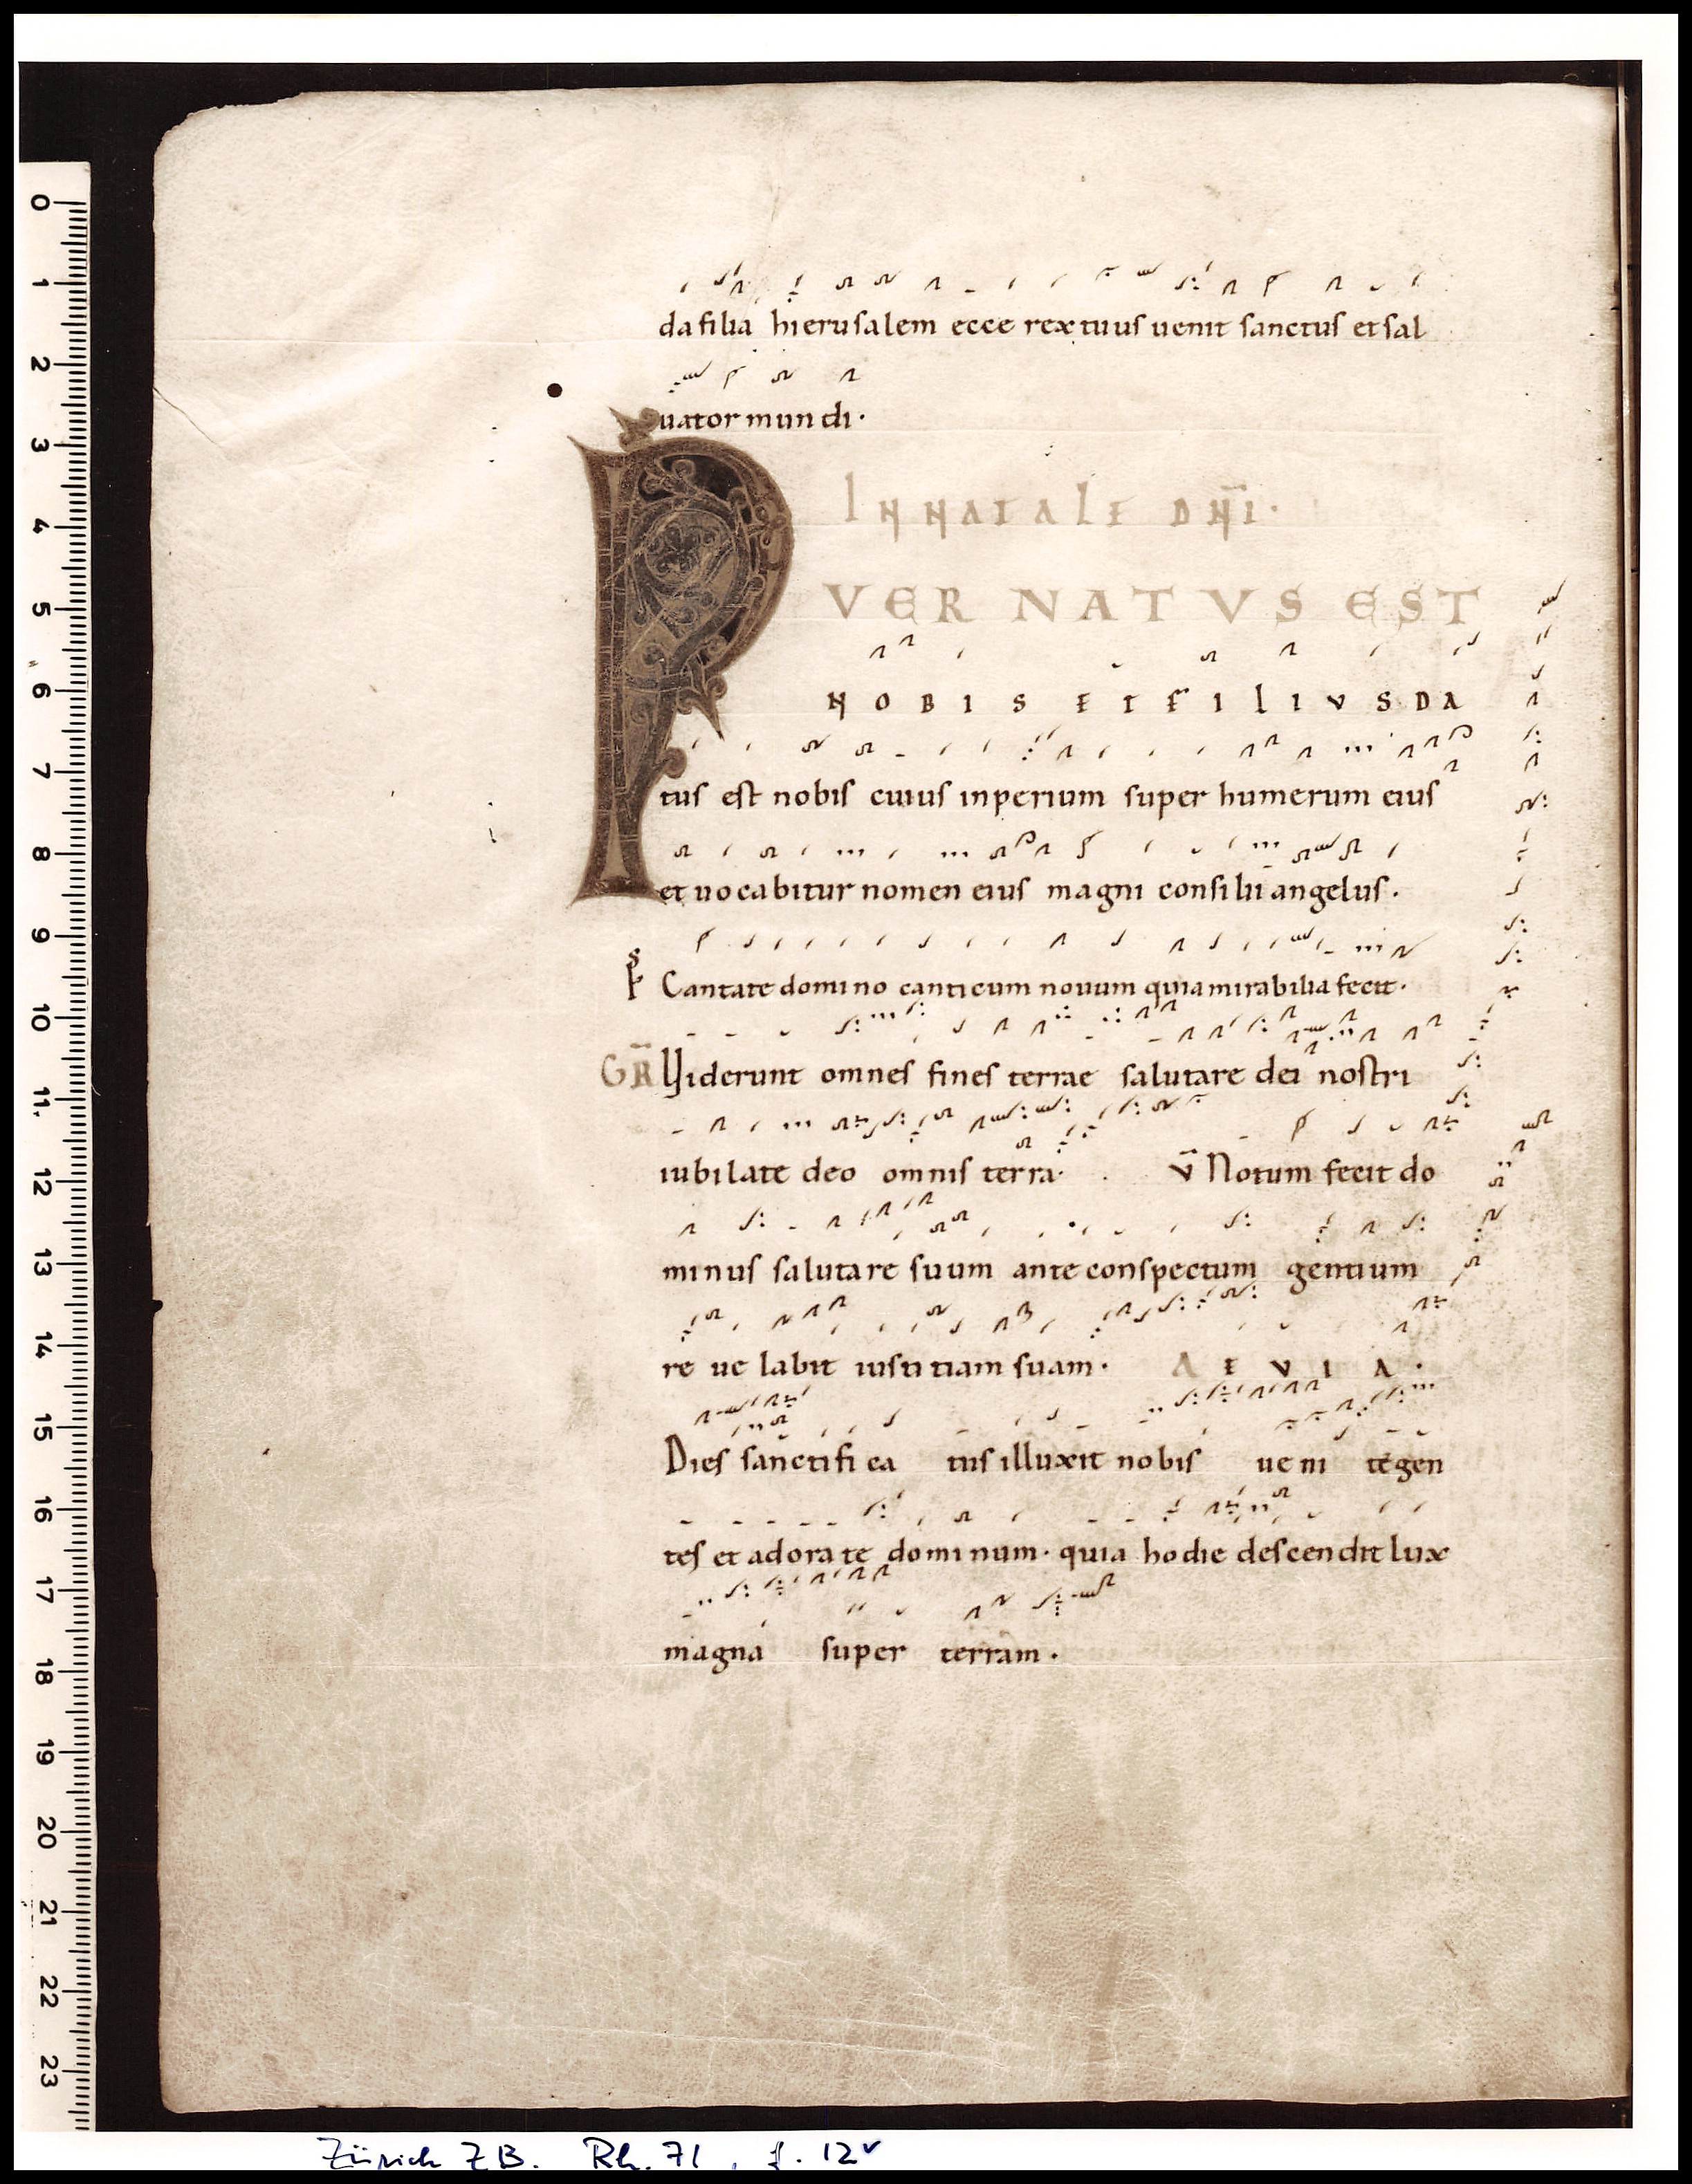 da filia hierusalem ecce rex tuus uenit sanctus et sal
uator mundi·
IN NATALE DN̄I·
PVER NATVS EST
NOBIS ET FILIVS DA
tus est nobis cuius inperium super humerum eius
et uocabitur nomen eius magni consilii angelus.
Ps Cantate domino canticum nouum quia mirabilia fecit.
GR̄ Viderunt omnes fines terrae salutare dei nostri
iubilate deo omnis terra· V̄ Notum fecit do
minus salutare suum ante conspectum gentium
re ue labit iusti tiam suam· AEVIA·
Dies sanctifi ca tus illuxit nobis ueni te gen
tes et adora te dominum· quia hodie descendit lux
magna super terram·
0
1
2
3
4
5
6
7
8
9
10
11
12
13
14
15
16
17
18
19
20
21
22
23
Zürich ZB. Rh. 71, f. 12v